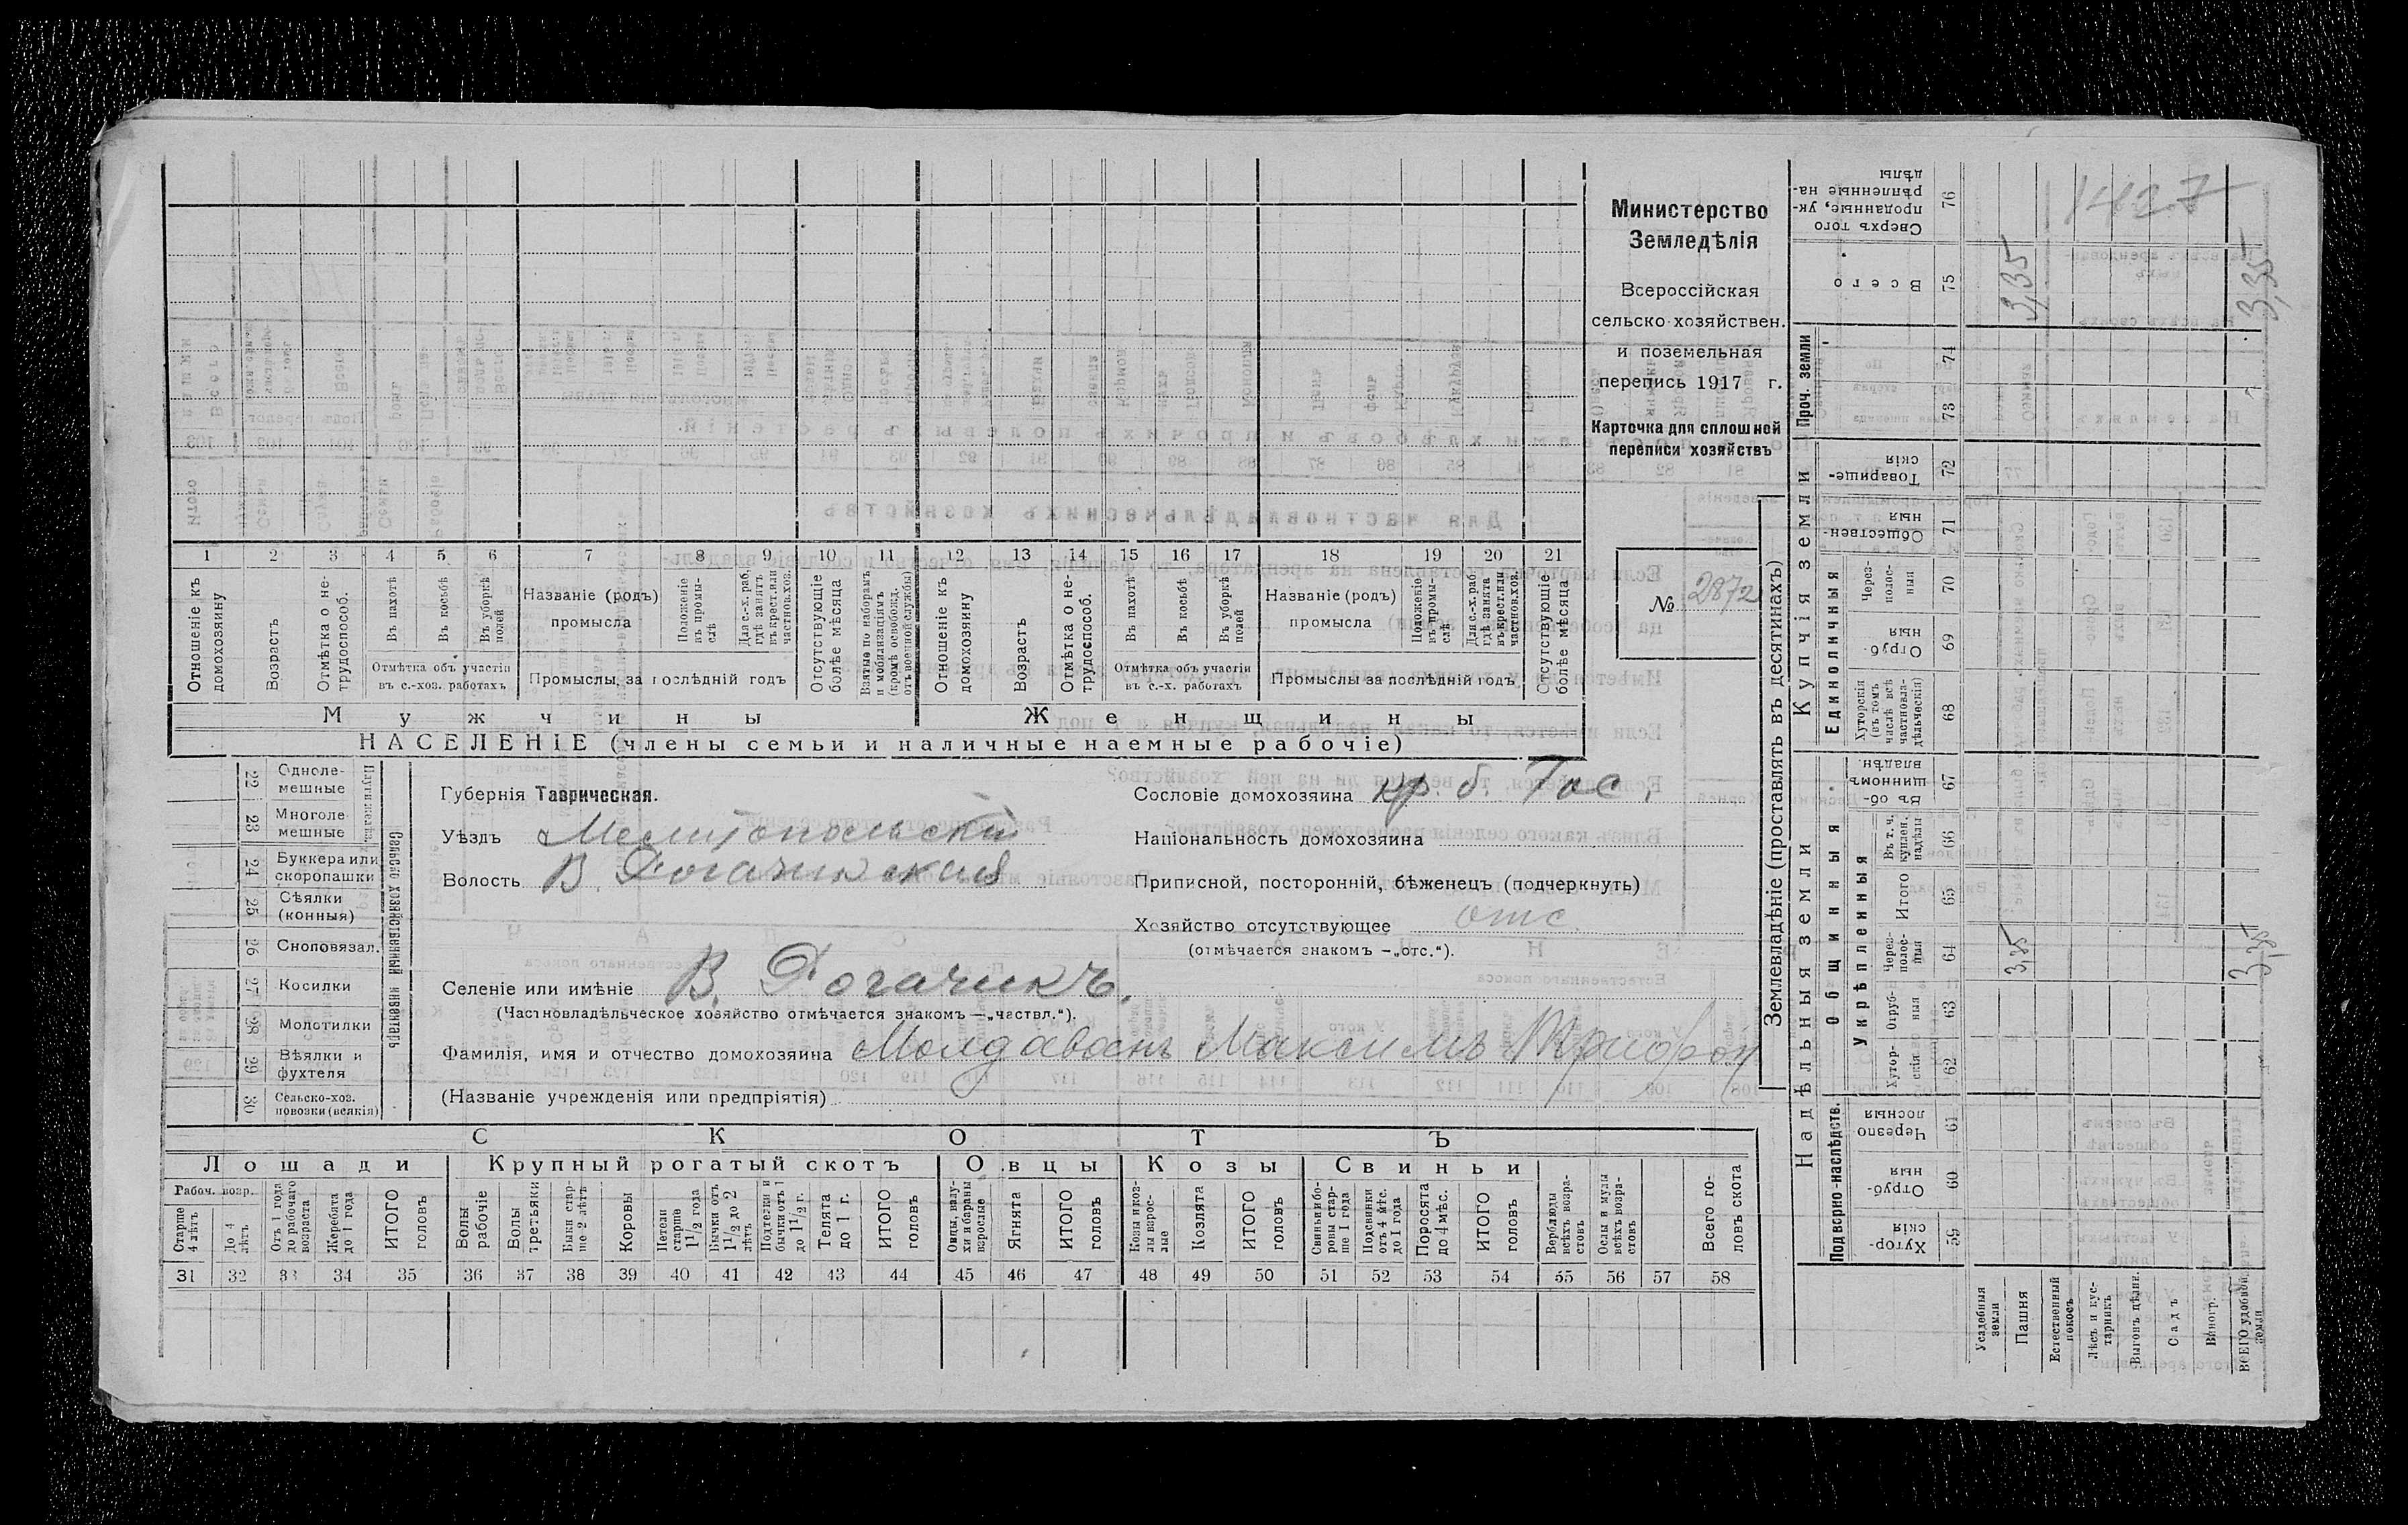 Министерство
Земледѣлія
Всероссійская
сельско-хозяйствен.
и поземельная
перепись 1917 г.
Карточка для сплошной
переписи хозяйствъ
№ 2872
1427
1 2 3 4 5 6 7 8 9 10 11 12 13 14 15 16 17 18 19 20 21
Отношеніе къ домохозяину
Возрастъ
Отмѣтка о не-трудоспособ.
Въ пахотѣ
Въ косьбѣ
Въ уборкѣ полей
Отмѣтка объ участіи
въ с.-хоз. работахъ
Названіе (родъ)
промысла
Положеніе въ промы-слѣ
Для с.-х. раб, гдѣ занятъ въ крест. или частнов. хоз.
Промыслы за послѣдній годъ
Отсутствующіе болѣе мѣсяца
Взятые по наборамъ и мобилизаціямъ (кромѣ освобожд. отъ военной службы)
Отношеніе къ домохозяину
Возрастъ
Отмѣтка о не-трудоспособ.
Въ пахотѣ
Въ косьбѣ
Въ уборкѣ полей
Отмѣтка объ участіи
въ с.-х. работахъ
Названіе (родъ)
промысла
Положеніе въ промы-слѣ
Для с.-х. раб. гдѣ занята въ крест. или частнов. хоз.
Промыслы за послѣдній годъ
Отсутствующіе болѣе мѣсяца
Мужчины
Женщины
НАСЕЛЕНІЕ (члены семьи и наличные наемные рабочіе)
22 Одноле-мешные
23 Многоле-мешные
24 Буккера или скоропашки
25 Сѣялки (конныя)
26 Сноповязал.
27 Косилки
28 Молотилки
29 Вѣялки и фухтеля
30 Сельско-хоз. повозки (всякія)
Сельско хозяйственный инвентарь
Губернія Таврическая.
Уѣздъ Мелитопольскій
Волость В. Рогачинская
Селеніе или имѣніе В. Рогачикъ.
(Частновладѣльческое хозяйство отмѣчается знакомъ —„частвл.“).
Фамилія, имя и отчество домохозяина Молдованъ Максимъ Трифон
(Названіе учрежденія или предпріятія)
Сословіе домохозяина кр. б. Гос.
Національность домохозяина
Приписной, посторонній, бѣженецъ (подчеркнуть)
Хозяйство отсутствующее отс.
(отмѣчается знакомъ —„отс.“).
СКОТЪ
Лошади
Крупный рогатый скотъ
Овцы
Козы
Свиньи
Рабоч. возр.
Старше 4 лѣтъ
До 4 лѣтъ
Отъ 1 года до рабочаго возраста
Жеребята до 1 года
ИТОГО головъ
Волы рабочіе
Волы третьяки
Быки стар-ше 2 лѣтъ
Коровы
Нетели старше 1 1/2 года
Бычки отъ 1 1/2 до 2 лѣтъ
Подтелки и бычки отъ 1 до 1 1/2 г.
Телята до 1 г.
ИТОГО головъ
Овцы, валу-хи и бараны взрослые
Ягнята
ИТОГО головъ
Козы и коз-лы взрос-лые
Козлята
ИТОГО головъ
Свиньи и бо-ровы стар-ше 1 года
Подсвинки отъ 4 мѣс. до 1 года
Поросята до 4 мѣс.
ИТОГО головъ
Верблюды всѣхъ возра-стовъ
Ослы и мулы всѣхъ возра-стовъ
Всего го-ловъ скота
31 32 33 34 35 36 37 38 39 40 41 42 43 44 45 46 47 48 49 50 51 52 53 54 55 56 57 58
Землевладѣніе (проставлять въ десятинахъ)
Надѣльныя земли
Купчія земли
Проч. земли
Подворно-наслѣдств.
Общинныя
Укрѣпленныя
Единоличныя
Хутор-скія 59
Отруб-ныя 60
Черезпо лосныя 61
Хутор-скія 62
Отруб-ныя 63
Через-полос-ныя 64
Итого 65
Въ т. ч. куплен. надѣлы 66
Въ об-щинномъ владѣн. 67
Хуторскія (въ томъ числѣ всѣ частновла-дѣльческія) 68
Отруб-ныя 69
Через-полос-ныя 70
Обществен-ныя 71
Товарище-скія 72
73
74
Всего 75
Сверхъ того проданные, ук-рѣпленные на-дѣлы 76
Усадебныя земли
Пашня 3,35 3,35
Естественный покосъ
Лѣсъ и кус-тарникъ
Выгонъ цѣлин.
Садъ
Виногр.
ВСЕГО удобной земли 3,35 3,35